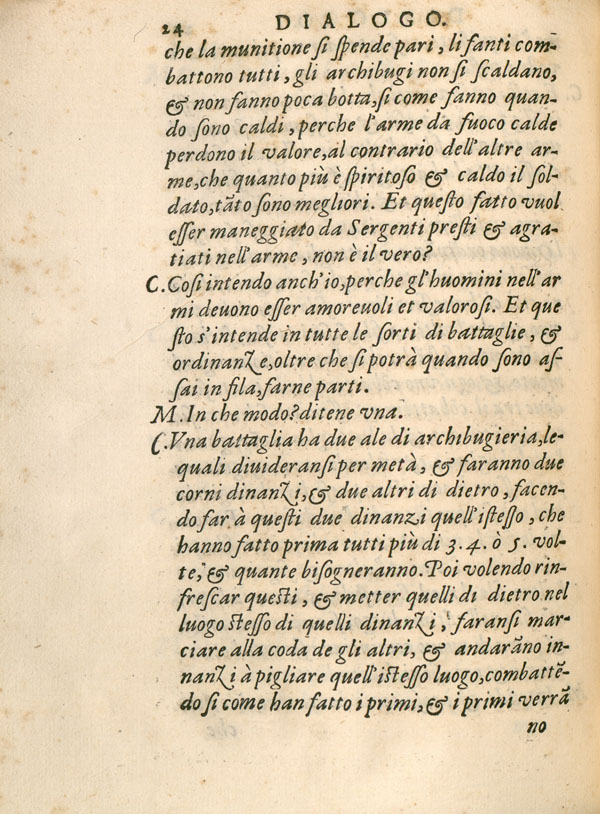 24 DIALOGO.
che la munitione si spende pari, li fanti com-
battono tutti, gli archibugi non si scaldano,
& non fanno poca botta, si come fanno quan-
do sono caldi, perche l'arme da fuoco calde
perdono il valore, al contrario dell'altre ar-
me, che quanto più è spiritoso & caldo il sol-
dato, tāto sono megliori. Et questo fatto vuol
esser maneggiato da Sergenti presti & agra-
tiati nell'arme, non è il vero?
C. Cosi intendo anch'io, perche gl'huomini nell'ar
mi deuono esser amoreuoli et valorosi. Et que
sto s'intende in tutte le sorti di battaglie, &
ordinanze, oltre che si potrà quando sono as-
sai in fila, farne parti.
M. In che modo? ditene vna.
C. Vna battaglia ha due ale di archibugieria, le-
quali diuideransi per metà, & faranno due
corni dinanzi, & due altri di dietro, facen-
do far à questi due dinanzi quell'istesso, che
hanno fatto prima tutti più di 3. 4. ò 5. vol-
te, & quante bisogneranno. Poi volendo rin-
frescar questi, & metter quelli di dietro nel
luogo stesso di quelli dinanzi, faransi mar-
ciare alla coda de gli altri, & andarāno in-
nanzi à pigliare quell'istesso luogo, combattē-
do si come han fatto i primi, & i primi verrā
no